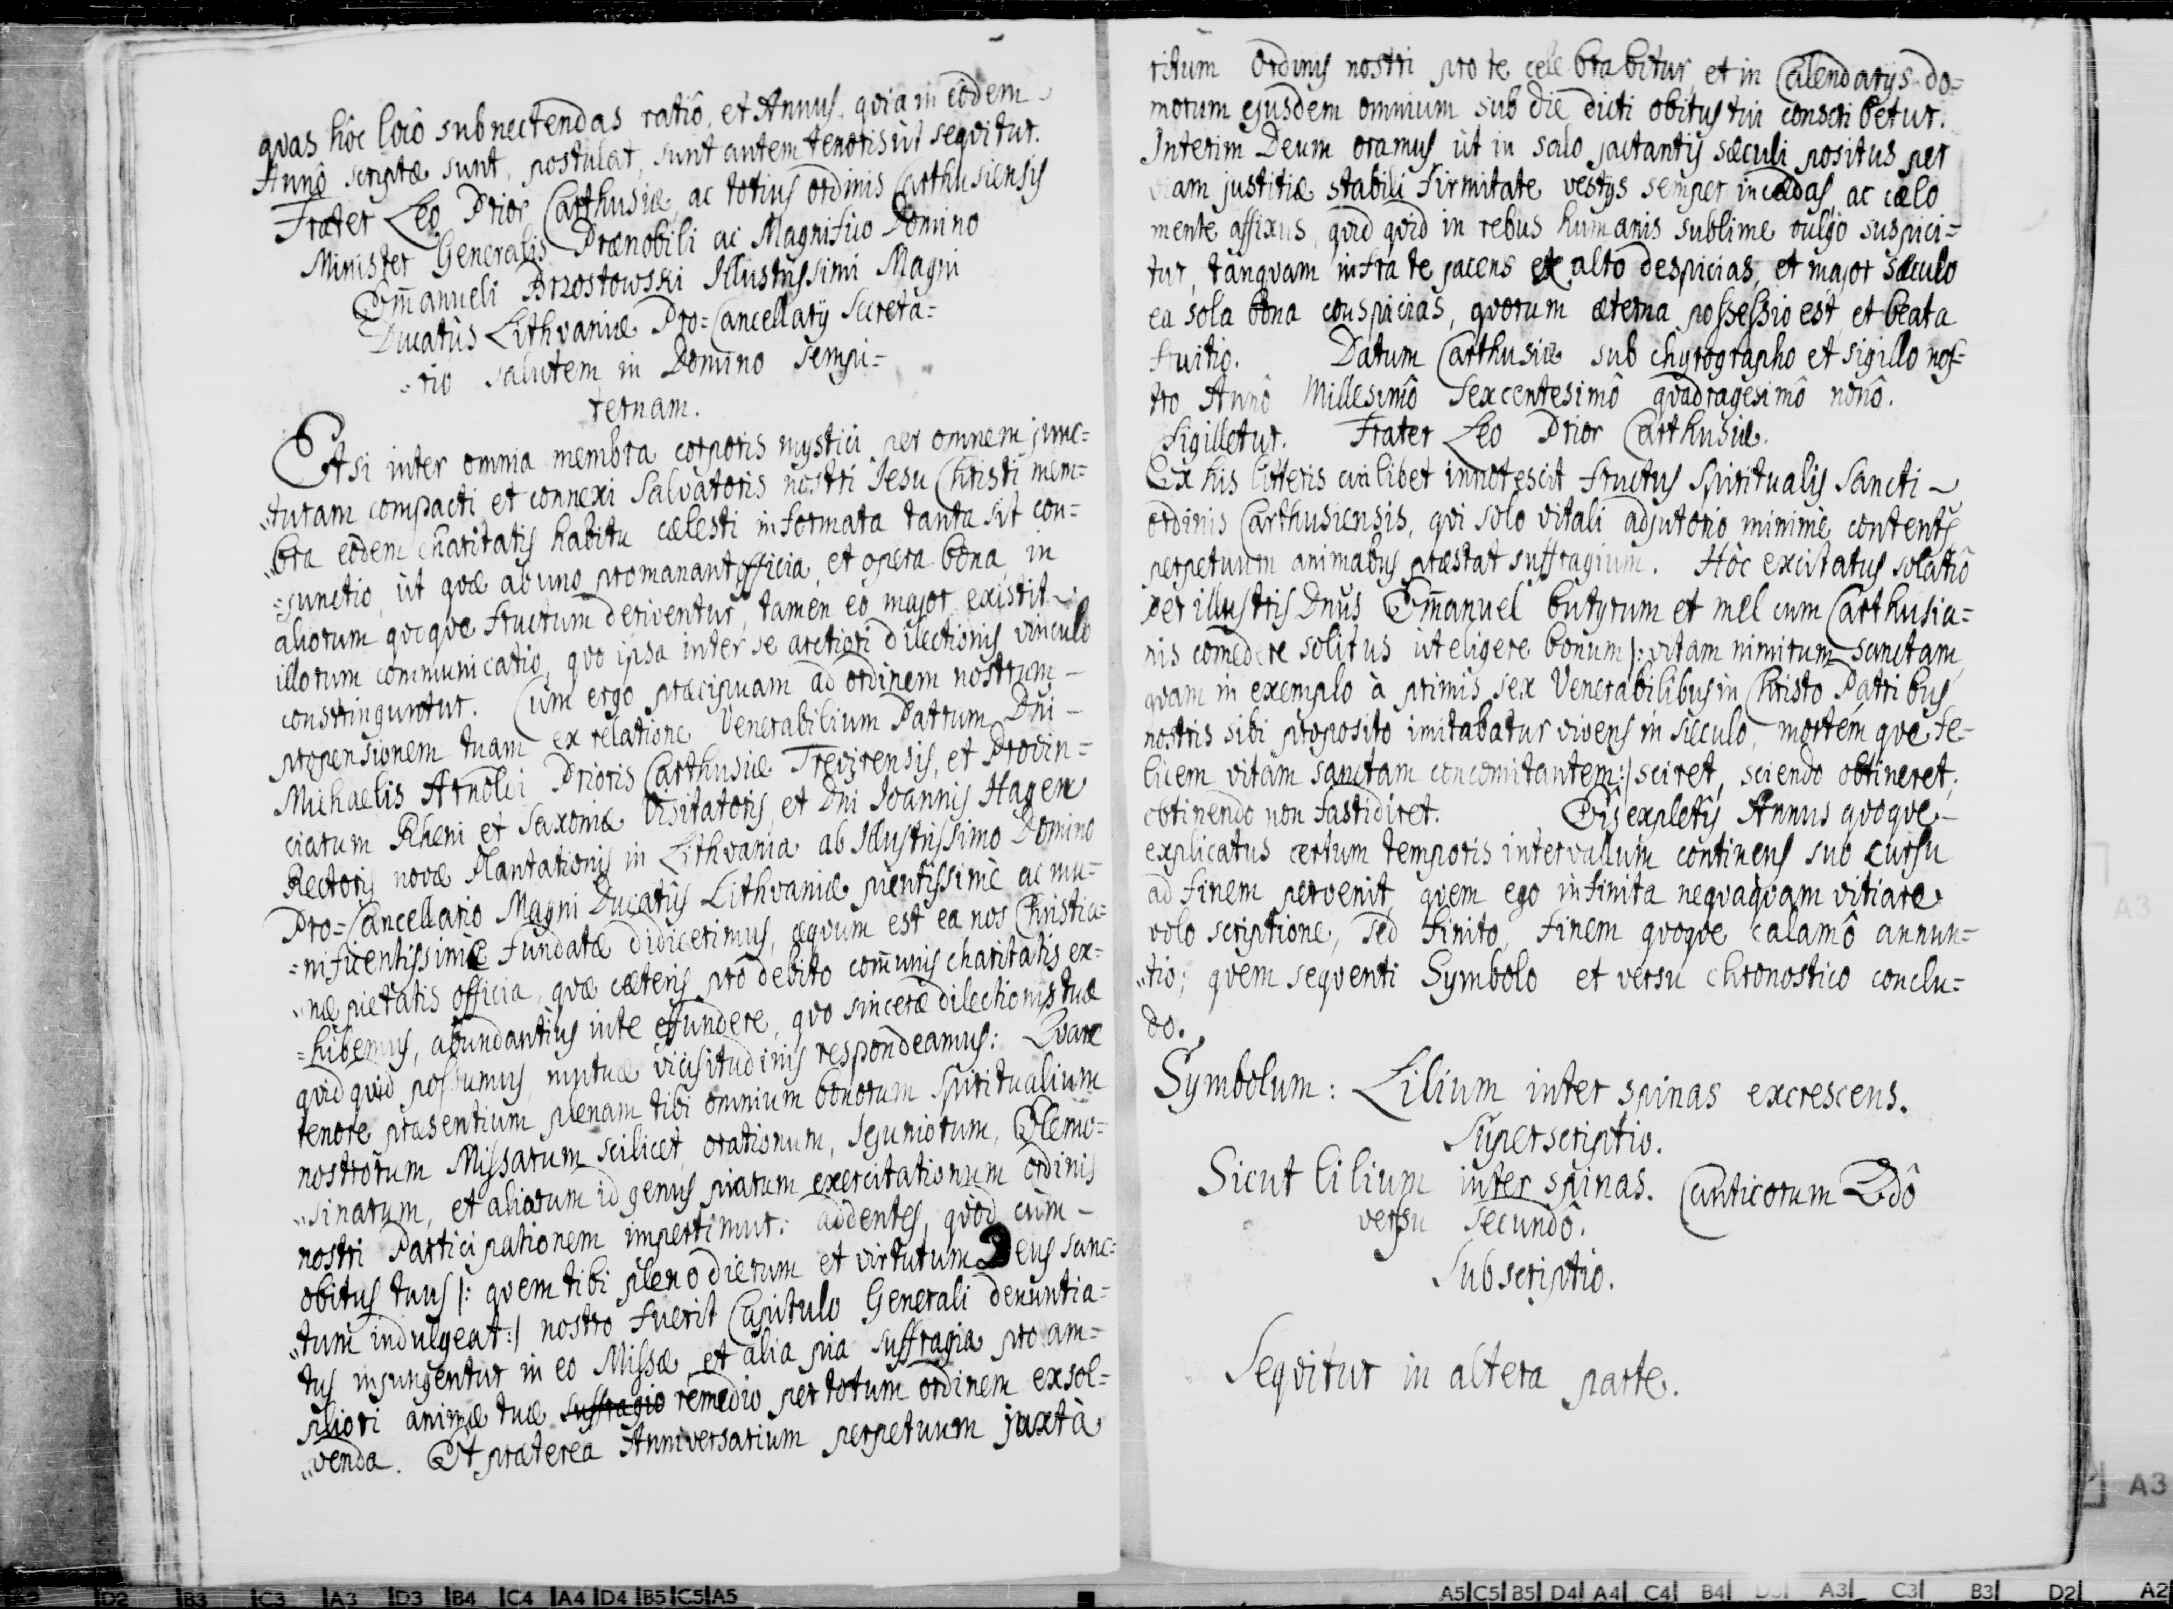 qvas hôc locô subnectendas ratiô, et Annus, qvia in eôdem
Annô scriptæ sunt, postulat, sunt autem tenoris ut seqvitur.
Frater Leo Prior Carthusiæ, ac totius ordinis Carthusiensis
Minister Generalis Prænobili ac Magnifico Domino
Em̄anueli Brzostowski Illustrissimi Magni
Ducatûs Lithvaniæ Pro=Cancellarij Secretà=
=rio salutem in Domino sempi=
ternam.
Etsi inter omnia membra corporis mystici per omnem junc=
turam compacti et connexi Salvatoris nostri Jesu Christi mem=
bra eôdem charitatis habitu cælesti informata tanta sit con=
=junctio, ut qvæ ab uno promanant officia, et opera bona in
aliorum qvoqve fructum deriventur, tamen eò major existit
illorum communicatio, qvo ipsa inter se arctiori dilectionis vinculo
constringuntur. Cùm ergo præcipuam ad ordinem nostrum
propensionem tuam ex relatione Venerabilium Patrum Dni
Michaelis Arnoldi Prioris Carthusiæ Trevirensis, et Provin=
ciarum Rheni et Saxoniæ Visitatoris, et Dni Joannis Hagen
Rectoris novæ Plantationis in Lithvania ab Illustrissimo Domino
Pro=Cancellario Magni Ducatûs Lithvaniæ pientissimè ac mu=
=nificentissimè fundatæ didicerimus, æqvum est ea nos Christia=
næ pietatis officia, qvæ cæteris prô debito com̄unis charitatis ex=
=hibemus, abundantiùs in te effundere, qvo sinceræ dilectionis tuæ
qvid qvid possumus, mutuæ vicissitudinis respondeamus: Qvare
tenore præsentium plenam tibi omnium bonorum Spiritualium
nostrorum Missarum scilicet, orationum, Jejuniorum, Elemo=
sinarum, et aliorum id genus piarum exercitationum ordinis
nostri Participationem impertimur: addentes, qvòd cùm
obitus tuus |: qvem tibi pleno dierum et virtutum Deus sanc=
tum indulgeat:| nostro fuerit Capitulo Generali denuntia=
tus injungentur in eo Missæ, et alia pia suffragia pro am=
pliori animæ tuæ suffragio remedio per totum ordinem exsol=
venda. Et præterea Anniversarium perpetuum juxtà
ritum Ordinis nostri pro te celebrabitur, et in Calendarijs do=
morum ejusdem omnium sub die dicti obitus tui conscribetur.
Interim Deum oramus ùt in salo jactantis sæculi positus per
viam justitiæ stabili firmitate vestijs semper incædas, ac cælo
mente affixus, qvid qvid in rebus humanis sublime vulgò suspici=
tur, tanqvam infra te jacens ex alto despicias, et major sæculo
ea sola bona conspicias, qvorum æterna possessio est, et beata
fruitio. Datum Carthusiæ sub chyrographo et sigillo nos=
tro Annô Millesimô Sexcentesimô qvadragesimô nonô.
Sigilletur. Frater Leo Prior Carthusiæ.
Ex his litteris cuilibet innotescit fructus Spiritualis Sancti
ordinis Carthusiensis, qvi solo vitali adjutorio minimè contents
perpetuum animabus præstat suffragium. Hôc excitatus solatiô
perillustris Dnus Em̄anuel butyrum et mel cum Carthusia=
nis comedere solitus ut eligere bonum |: vitam nimirum sanctam
qvam in exemplo à primis sex Venerabilibus in Christo Patribus
nostris sibi proposito imitabatur vivens in sæculo, mortem qve fe=
licem vitam sanctam concomitantem:| sciret, sciendo obtineret,
obtinendo non fastidiret. His expletis Annus qvoqve
explicatus certum temporis intervallum continens suo cursu
ad finem pervenit, qvem ego infinita neqvaqvam vitiare
volo scriptione, sed finito, finem qvoqve calamô annun=
tio; qvem seqventi Symbolo et versu chronostico conclu=
do.
Symbolum: Lilium inter spinas excrescens.
Superscriptio.
Sicut lilium inter spinas. Canticorum 2dô
versu secundô.
Subscriptio.
Seqvitur in altera parte.
A3
A3
D2 B3 C3 A3 D3 B4 C4 A4 D4 B5 C5 A5
A5 C5 B5 D4 A4 C4 B4 D3 A3 C3 B3 D2 A2